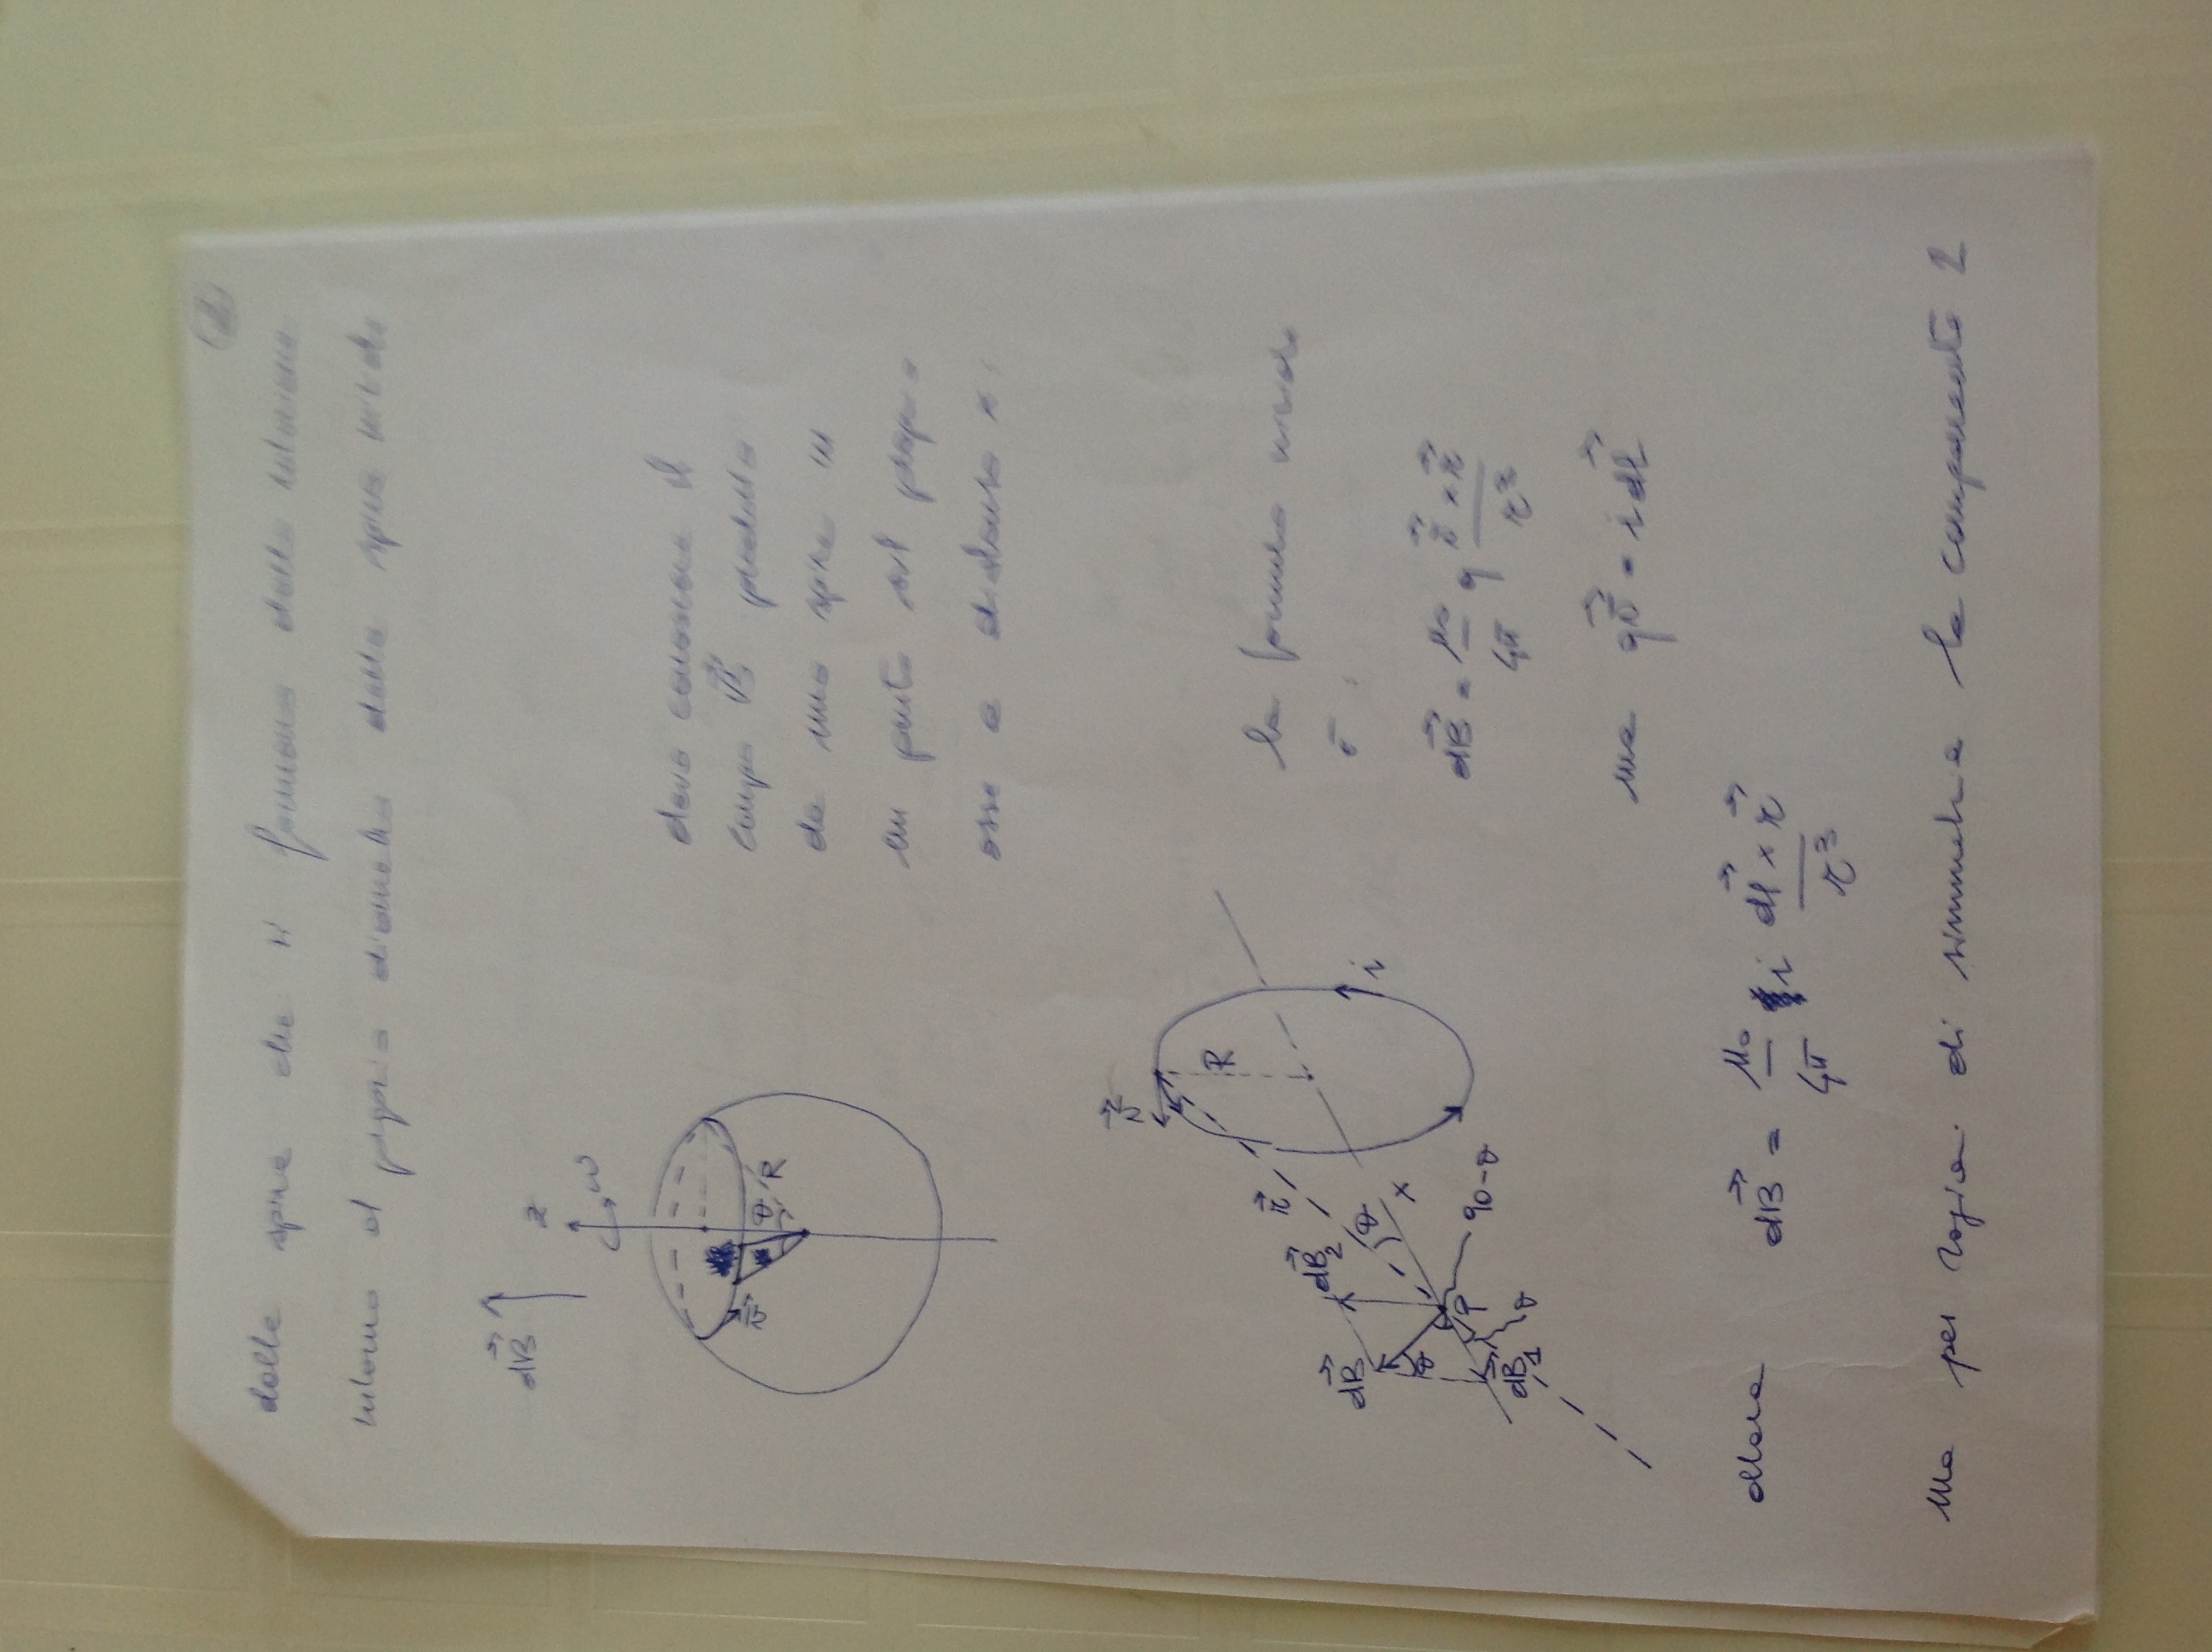 2
dalle spire che si formano dalla rotazione
intorno al proprio diametro della spira iniziale
dB⃗
z
ω
v⃗
θ
R
devo conoscere il
campo B⃗ prodotto
da una spira in
un punto sul proprio
asse a distanza x:
v⃗
R
r⃗
dB⃗₂
dB⃗
θ
x
i
θ
P
90-θ
dB⃗₁
θ
la formula iniziale
è :
dB⃗ = μ₀/4π q v⃗ × r⃗/r³
ma qv⃗ = i dl⃗
allora dB⃗ = μ₀/4π i dl⃗ × r⃗/r³
Ma per ragioni di simmetria la componente 2